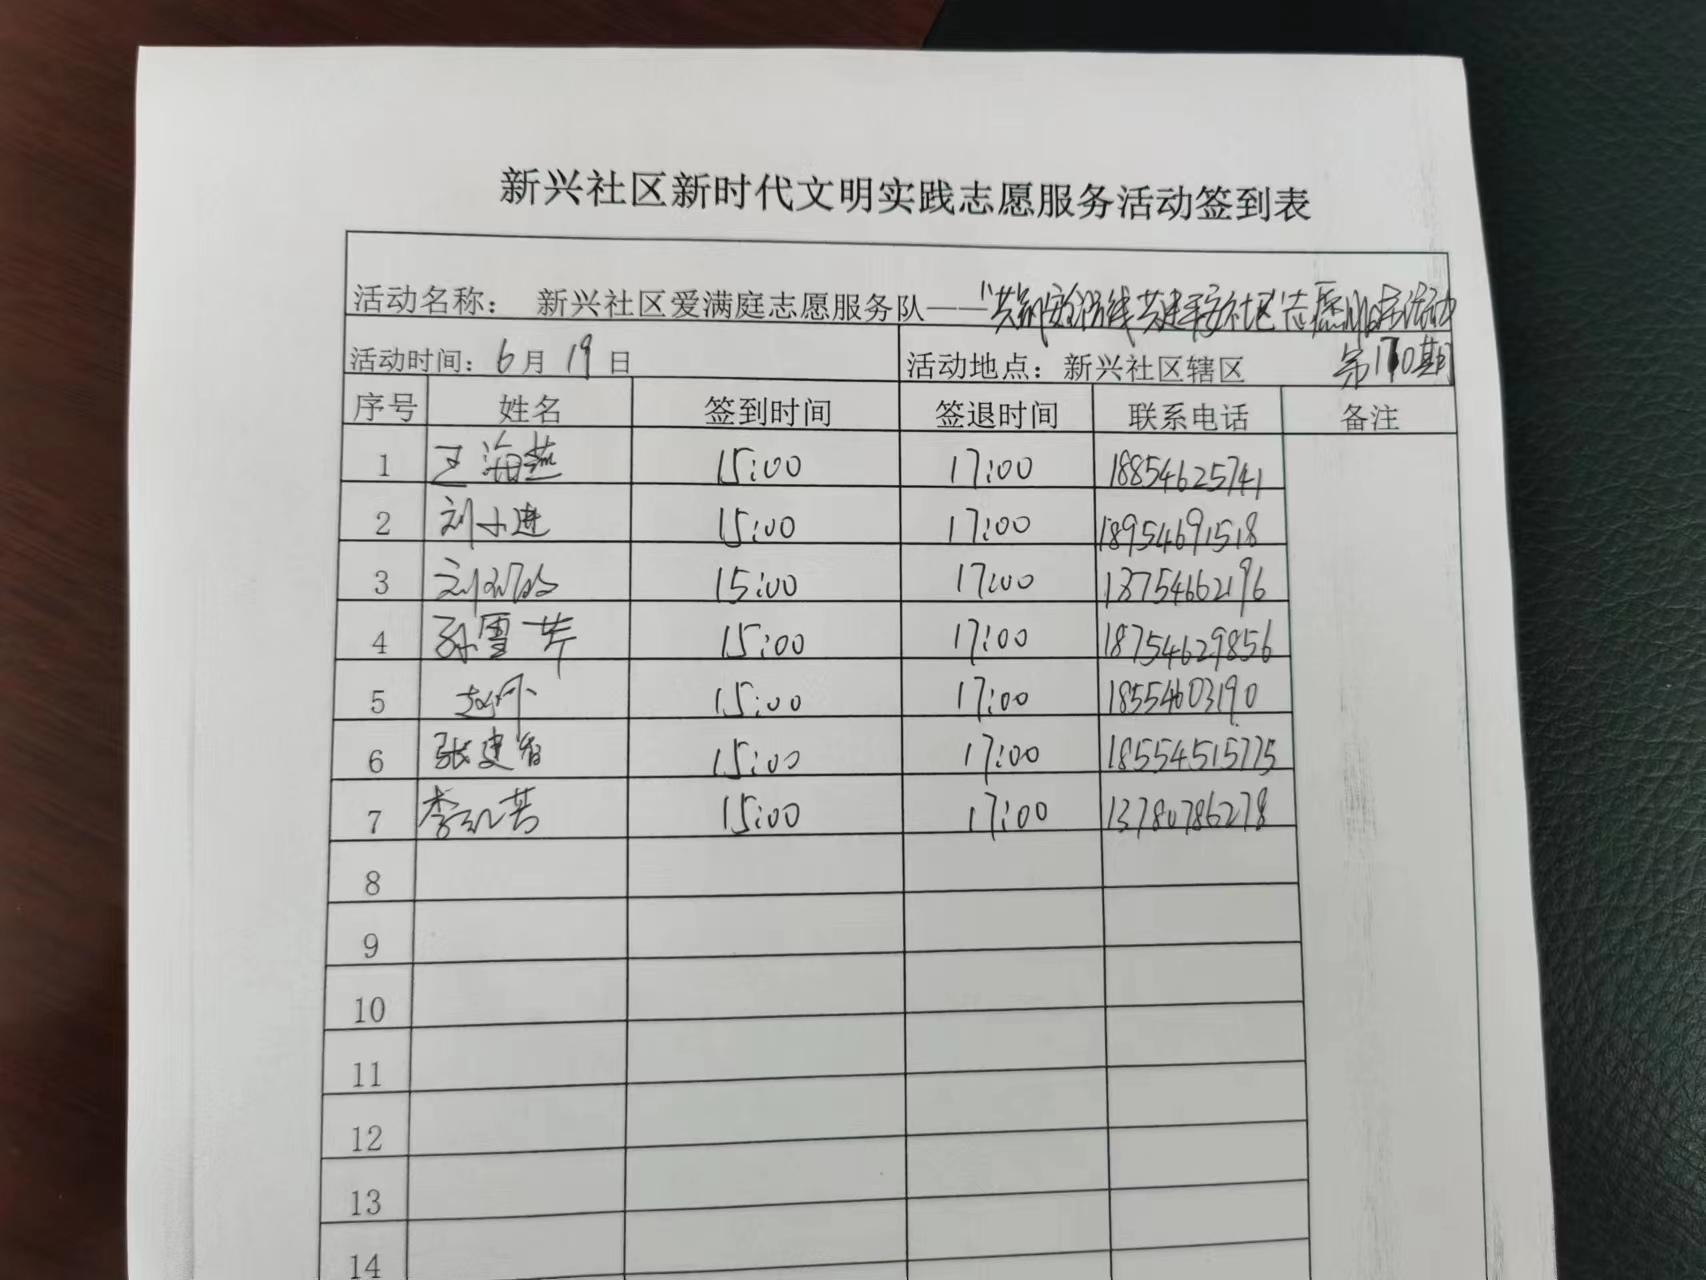 新兴社区新时代文明实践志愿服务活动签到表
活动名称： 新兴社区爱满庭志愿服务队——“共筑安全防线 共建平安社区”志愿服务活动
活动时间：6月19日 活动地点：新兴社区辖区 第170期
序号 姓名 签到时间 签退时间 联系电话 备注
1 王海燕 15:00 17:00 18854625741
2 刘小进 15:00 17:00 18954691518
3 刘 15:00 17:00 13754662196
4 孙雪芹 15:00 17:00 18754629856
5 赵 15:00 17:00 18554603190
6 张建智 15:00 17:00 18554515775
7 李 15:00 17:00 13780786278
8
9
10
11
12
13
14